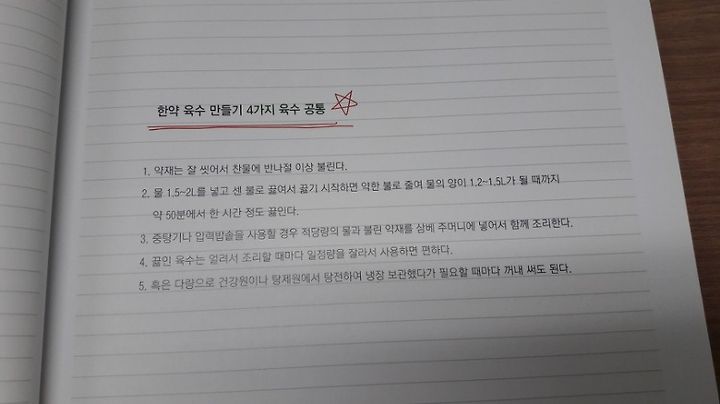 한약 육수 만들기 4가지 육수 공통
1. 약재는 잘 씻어서 찬물에 반나절 이상 불린다.
2. 물 1.5~2L를 넣고 센 불로 끓여서 끓기 시작하면 약한 불로 줄여 물의 양이 1.2~1.5L가 될 때까지
약 50분에서 한 시간 정도 끓인다.
3. 중탕기나 압력밥솥을 사용할 경우 적당량의 물과 불린 약재를 삼베 주머니에 넣어서 함께 조리한다.
4. 끓인 육수는 얼려서 조리할 때마다 일정량을 잘라서 사용하면 편하다.
5. 혹은 다량으로 건강원이나 탕제원에서 탕전하여 냉장 보관했다가 필요할 때마다 꺼내 써도 된다.